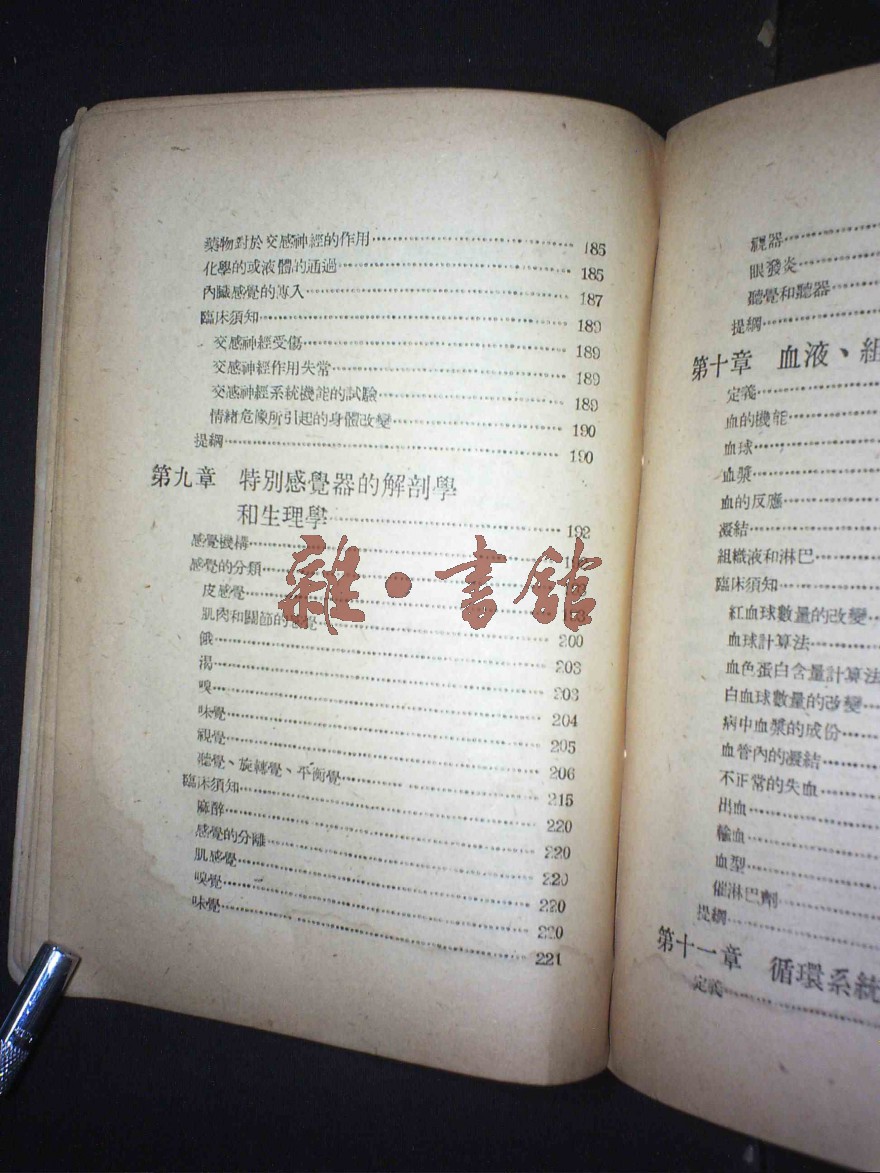 藥物對於交感神經的作用……185
化學的或液體的通過……185
內臟感覺的傳入……187
臨床須知……189
交感神經受傷……189
交感神經作用失常……189
交感神經系統機能的試驗……189
情緒危像所引起的身體改變……190
提綱……190
第九章 特別感覺器的解剖學
和生理學……192
感覺機構……192
感覺的分類……193
皮感覺……193
肌肉和關節的感覺……200
餓……203
渴……203
嗅……204
味覺……205
視覺……206
聽覺、旋轉覺、平衡覺……215
臨床須知……220
麻醉……220
感覺的分離……220
肌感覺……220
嗅覺……220
味覺……221
雜·書館
視器……
眼發炎……
聽覺和聽器……
提綱……
第十章 血液、組
定義……
血的機能……
血球……
血漿……
血的反應……
凝結……
組織液和淋巴……
臨床須知……
紅血球數量的改變……
血球計算法……
血色蛋白含量計算法
白血球數量的改變……
病中血漿的成份……
血管內的凝結……
不正常的失血……
出血……
輸血……
血型……
催淋巴劑……
提綱……
第十一章 循環系統
定義……